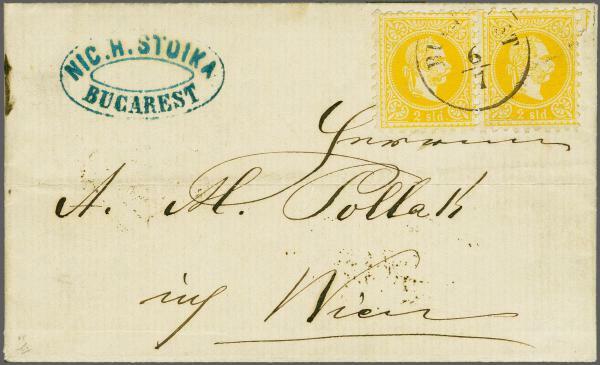 NIC. H. STOIKA
BUCAREST
2 sld
2 sld
6/7
A. M. Pollak
Wien